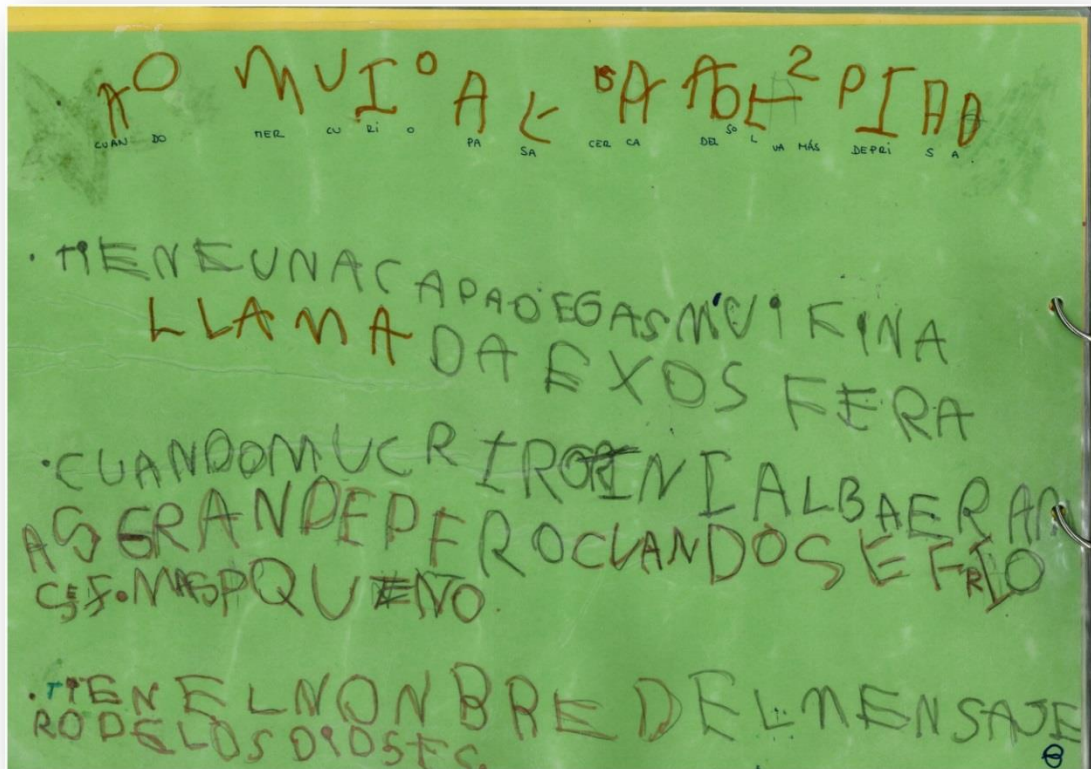 AO MUIO A L SA AOL2 PIAD
CUAN DO MER CU RI O PA SA CER CA DEL SO L VA MÁS DEPRI S A.
· TIENE UNA CAPA DE GAS MUI FINA
LLAMADA EXOSFERA
· CUANDO MUCRIRO INIALBA ERA
AS GRANDE PERO CUANDO SE FRIO
MAS PQUEÑO.
· TIEN EL NONBRE DEL MENSAJE
RO DE LOS DIOSES.